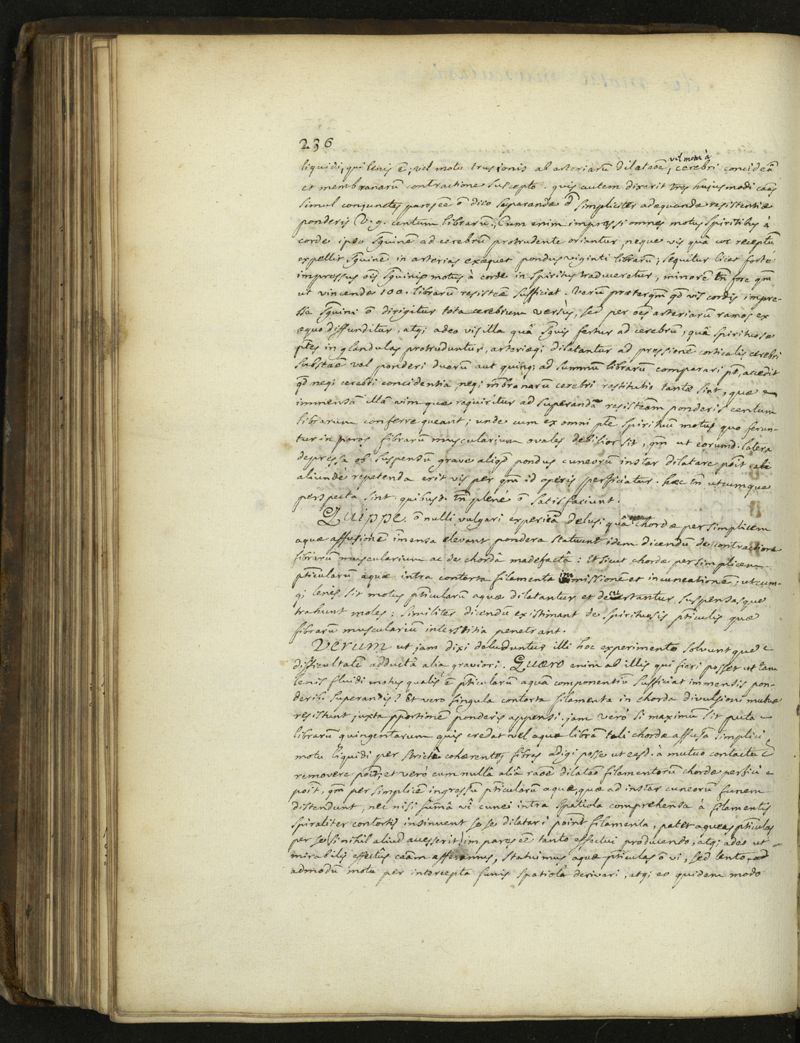 236
liquidi, qui lenis ē, vel motu trusionis ab arteriarū dilataōe, vel motu à cerebri concideā
et membranarū contractione suscepto. quis autem dixerit tres hujusmodi cāās
simul conjunctas pares eē ō dico superandæ sd simpliciter adequandæ resistentiæ
ponderis V. g. centum librarū. Cum enim impressi omnes motus spiritibus à
corde ipso sguinē ad cerebrū protrudente oriantur, neque vis quâ cor receptū
expellit sguinē in arterias exæquet pondus viginti librarū, sequitur licet forte
impressus oīs sguinis motus à corde in spiritus traduceretur, minorē tn̄ fore qm̄
ut vincendæ 100. librarū resistēæ sufficiat. Verū præterqm̄ qd vis cordis impre-
ssa sguini ō dirigitur tota cerebrum versùs, sed per oēs arteriarū ramos ex
æquo diffunditur, atqi adeo vis illa quâ sguis fertur ad cerebrū, quâ spirituosæ
ptēs in glandulas protruduntur, arteriæqi dilatantur ad pressionē corticalis cerebri
substāæ vel ponderi duarū aut quinqi ad summū librarum comparari pōt, accedit
qd neqi cerebri concidentia neqi mēbranarū cerebri restitutio tantæ sint, quæ
immensā illā vim quæ requiritur ad superandā resistēam ponderis centum
librarum conferre queant; unde cum ex omni pte spirituū motus quo ferun-
tur in poros fibrarū muscularium ovales debilior sit, qm̄ ut eorumd. latera
depressa ob suspensū grave aliqd pondus cuneorū instar dilatare possit
aliundè repetenda erit vis per qm̄ id operis perficiatur. hæc tn̄ utcumque
perspecta sint, quibusdi tn̄ plenè ō satisfaciunt.
Quippe ō nulli vulgari experiēā delusi quâ chordæ per simplicem
aquæ affusionē imensa elevant pondera statuunt idem dicendū de contractione
fibrarū muscularium ac de chordâ madefactâ: et sicut chordæ per simplicem
pticularū aquæ intra contorta filamenta immissionē et incuneationē, utcum-
qi lenis sit motus pticularū aquæ dilatantur et decurtantur suspensasque
trahunt moles; similiter dicendū existimant de spirituosis pticulis quæ
fibrarū muscularium interstitia penetrant.
Verum ut jam dixi deluduntur illi hoc experimento solvuntque
difficultatē adductâ aliâ graviori. Quæro enim ab illis qui fieri posset ut tam
lenis fluidi motus qualis ē pticularū aquam componentiū sufficiat immensis pon-
deribs superandis? Et verò singula contorta filamenta in chorda divulsioni mutuæ
resistunt juxta pportionē ponderis appensi. jam verò si maximū sit puta
librarū quingentarum quis credat vel aquæ librā tali chordæ affusâ simplici
motu liquidi per strictè cohærentes fibras adigi posse ut easd. à mutuo contactu
removere possit, et verò cum nullâ aliâ raōe dilatāō filamentorū chordæ perfici
possit, qm̄ per simplicē ingressū pticularū aquæ, quæ ad instar cuneorū funem
distendunt, nec nisi summâ vi cunei intra spatiola comprehensa à filamentis
spiraliter contortis insinuent se seu dilatari possint filamenta, patet aqueas pticulas
per se si nihil aliud accesserit impares eē tanto effectui producendo, atqi adeo ut
mirabilis effectûs cāām afferamus, statuimus aquæ pticulas ō vi, sed lento
admodū motu per intercepta funis spatiola derivari, atqi eo quidem modo